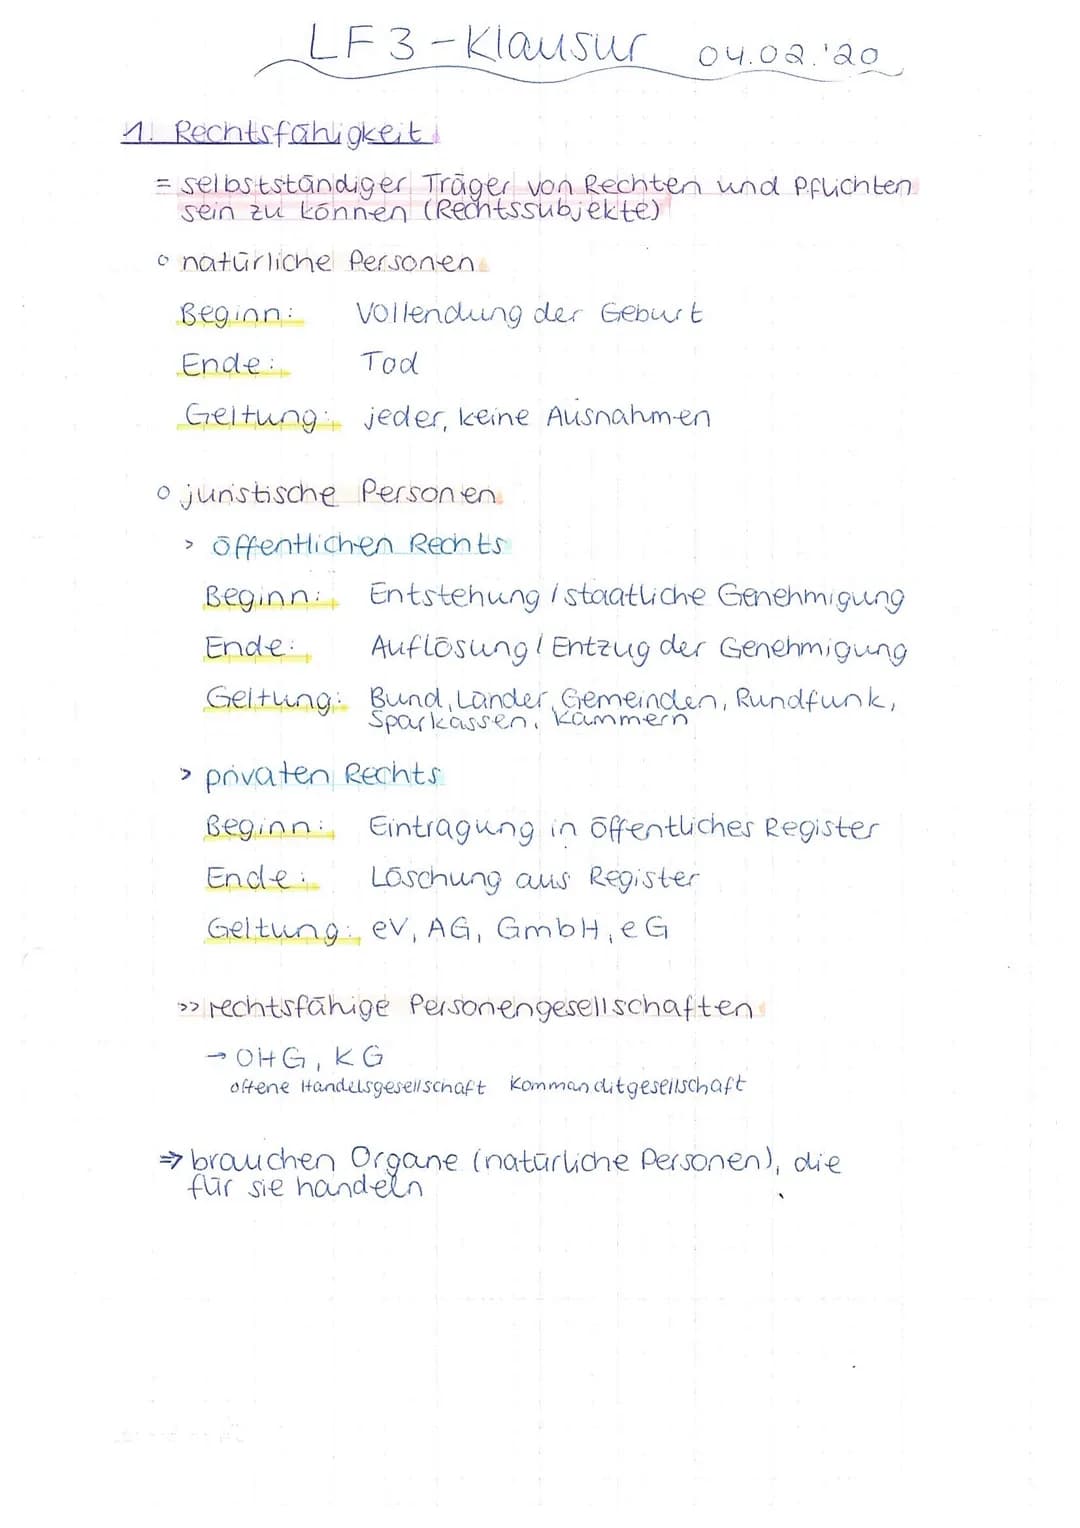 LF3-Klausur 04.02.'20
1. Rechtsfähigkeit
= selbstständiger Träger von Rechten und Pflichten
sein zu können (Rechtssubjekte)
o natürliche Personen
Beginn: Vollendung der Geburt
Ende: Tod
Geltung: jeder, keine Ausnahmen
o juristische Personen
> öffentlichen Rechts
Beginn: Entstehung / staatliche Genehmigung
Ende: Auflösung / Entzug der Genehmigung
Geltung: Bund, Länder, Gemeinden, Rundfunk,
Sparkassen, Kammern
> privaten Rechts
Beginn: Eintragung in öffentliches Register
Ende: Löschung aus Register
Geltung: eV, AG, GmbH, eG
>> rechtsfähige Personengesellschaften
→ OHG, KG
offene Handelsgesellschaft Kommanditgesellschaft
⇒ brauchen Organe (natürliche Personen), die
für sie handeln